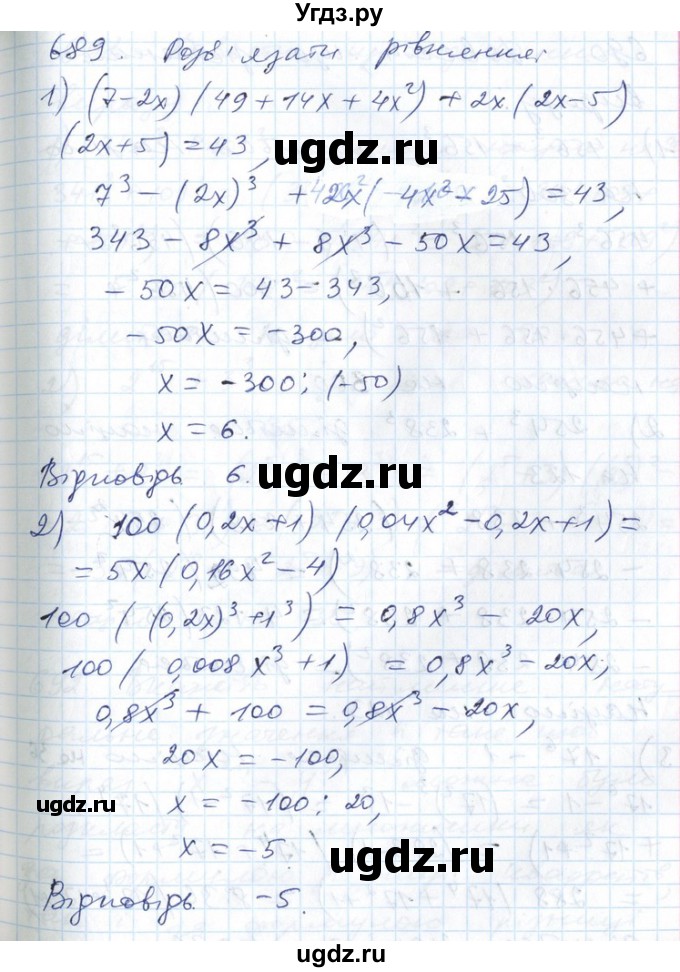 Угдз.ру
689. Розв'язати рівняння:
1) (7-2x) (49+14x+4x²) + 2x (2x-5)
(2x+5) = 43,
ugdz.ru
7³ - (2x)³ + 2x (4x² - 25) = 43,
343 - 8x³ + 8x³ - 50x = 43,
-50x = 43-343,
-50x = -300,
x = -300 : (-50)
x = 6.
Відповідь 6.
ugdz.ru
2) 100 (0,2x+1) (0,04x² - 0,2x+1) =
= 5x (0,16x² - 4)
100 ((0,2x)³ + 1³) = 0,8x³ - 20x,
100 (0,008x³ + 1) = 0,8x³ - 20x,
0,8x³ + 100 = 0,8x³ - 20x,
20x = -100,
ugdz.ru
x = -100 : 20,
x = -5.
ugdz.ru
Відповідь -5.
ugdz.ru